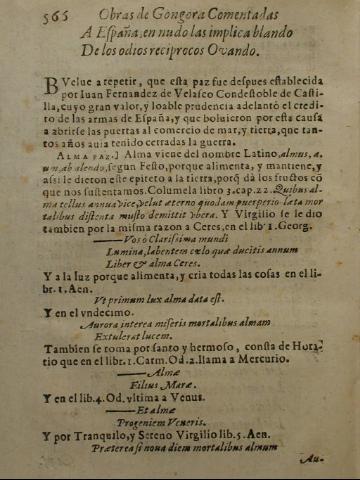 565
Obras de Gongora Comentadas
A España, en nudo las implica blando
De los odios reciprocos Ovando.
BVelue a repetir, que esta paz fue despues establecida
por Iuan Fernandez de Velasco Condestoble de Casti-
lla, cuyo gran valor, y loable prudencia adelantó el credi-
to de las armas de España, y que boluieron por esta causa
a abrirse las puertas al comercio de mar, y tierra, que tan-
tos años auia tenido cerradas la guerra.
ALMA PAZ.] Alma viene del nombre Latino, almus, a,
um, ab alendo, segun Festo, porque alimenta, y mantiene, y
assi le dieron este epiteto a la tierra, porq̃ dà los frustos cõ
que nos sustentamos. Columela libro 3. cap. 22. Quibus al-
ma tellus annua vice, velut æterno quodam puerperio læta mor
talibus distenta musto demittit vbera. Y Virgilio se le dio
tambien por la misma razon a Ceres, en el lib. 1. Georg.
Vos ò Clarissima mundi
Lumina, labentem cœlo quæ ducitis annum
Liber & alma Ceres.
Y a la luz porque alimenta, y cria todas las cosas en el li-
br. 1. Aen.
Vt primum lux alma data est.
Y en el vndecimo.
Aurora interea miseris mortalibus almam
Extulerat lucem.
Tambien se toma por santo y hermoso, consta de Hora-
tio que en el lib. 1. Carm. Od. 2. llama a Mercurio.
Almæ
Filius Maræ.
Y en el lib. 4. Od. vltima a Venus.
Et almæ
Progeniem Veneris.
Y por Tranquilo, y Sereno Virgilio lib. 5. Aen.
Præterea si nova diem mortalibus almum
Au-